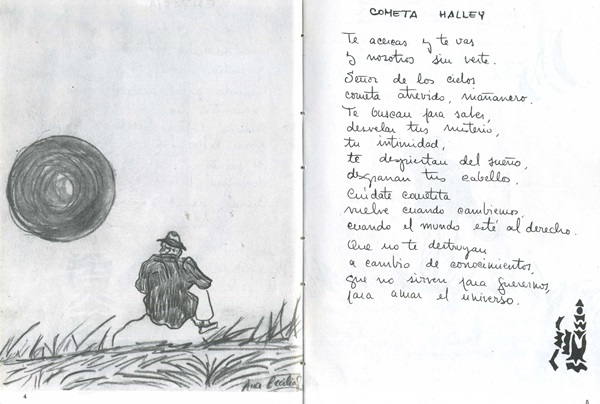 Ana Cecilia
4
COMETA HALLEY
Te acercas y te vas
y nosotros sin verte.
Señor de los cielos
cometa atrevido, mañanero.
Te buscan para saber,
desvelar tus misterio,
tu intimidad,
te despiertan del sueño,
desgranan tus cabellos.
Cuídate cometita
vuelve cuando cambiemos,
cuando el mundo esté al derecho.
Que no te destruyan
a cambio de conocimientos,
que no sirven para querernos,
para amar el universo.